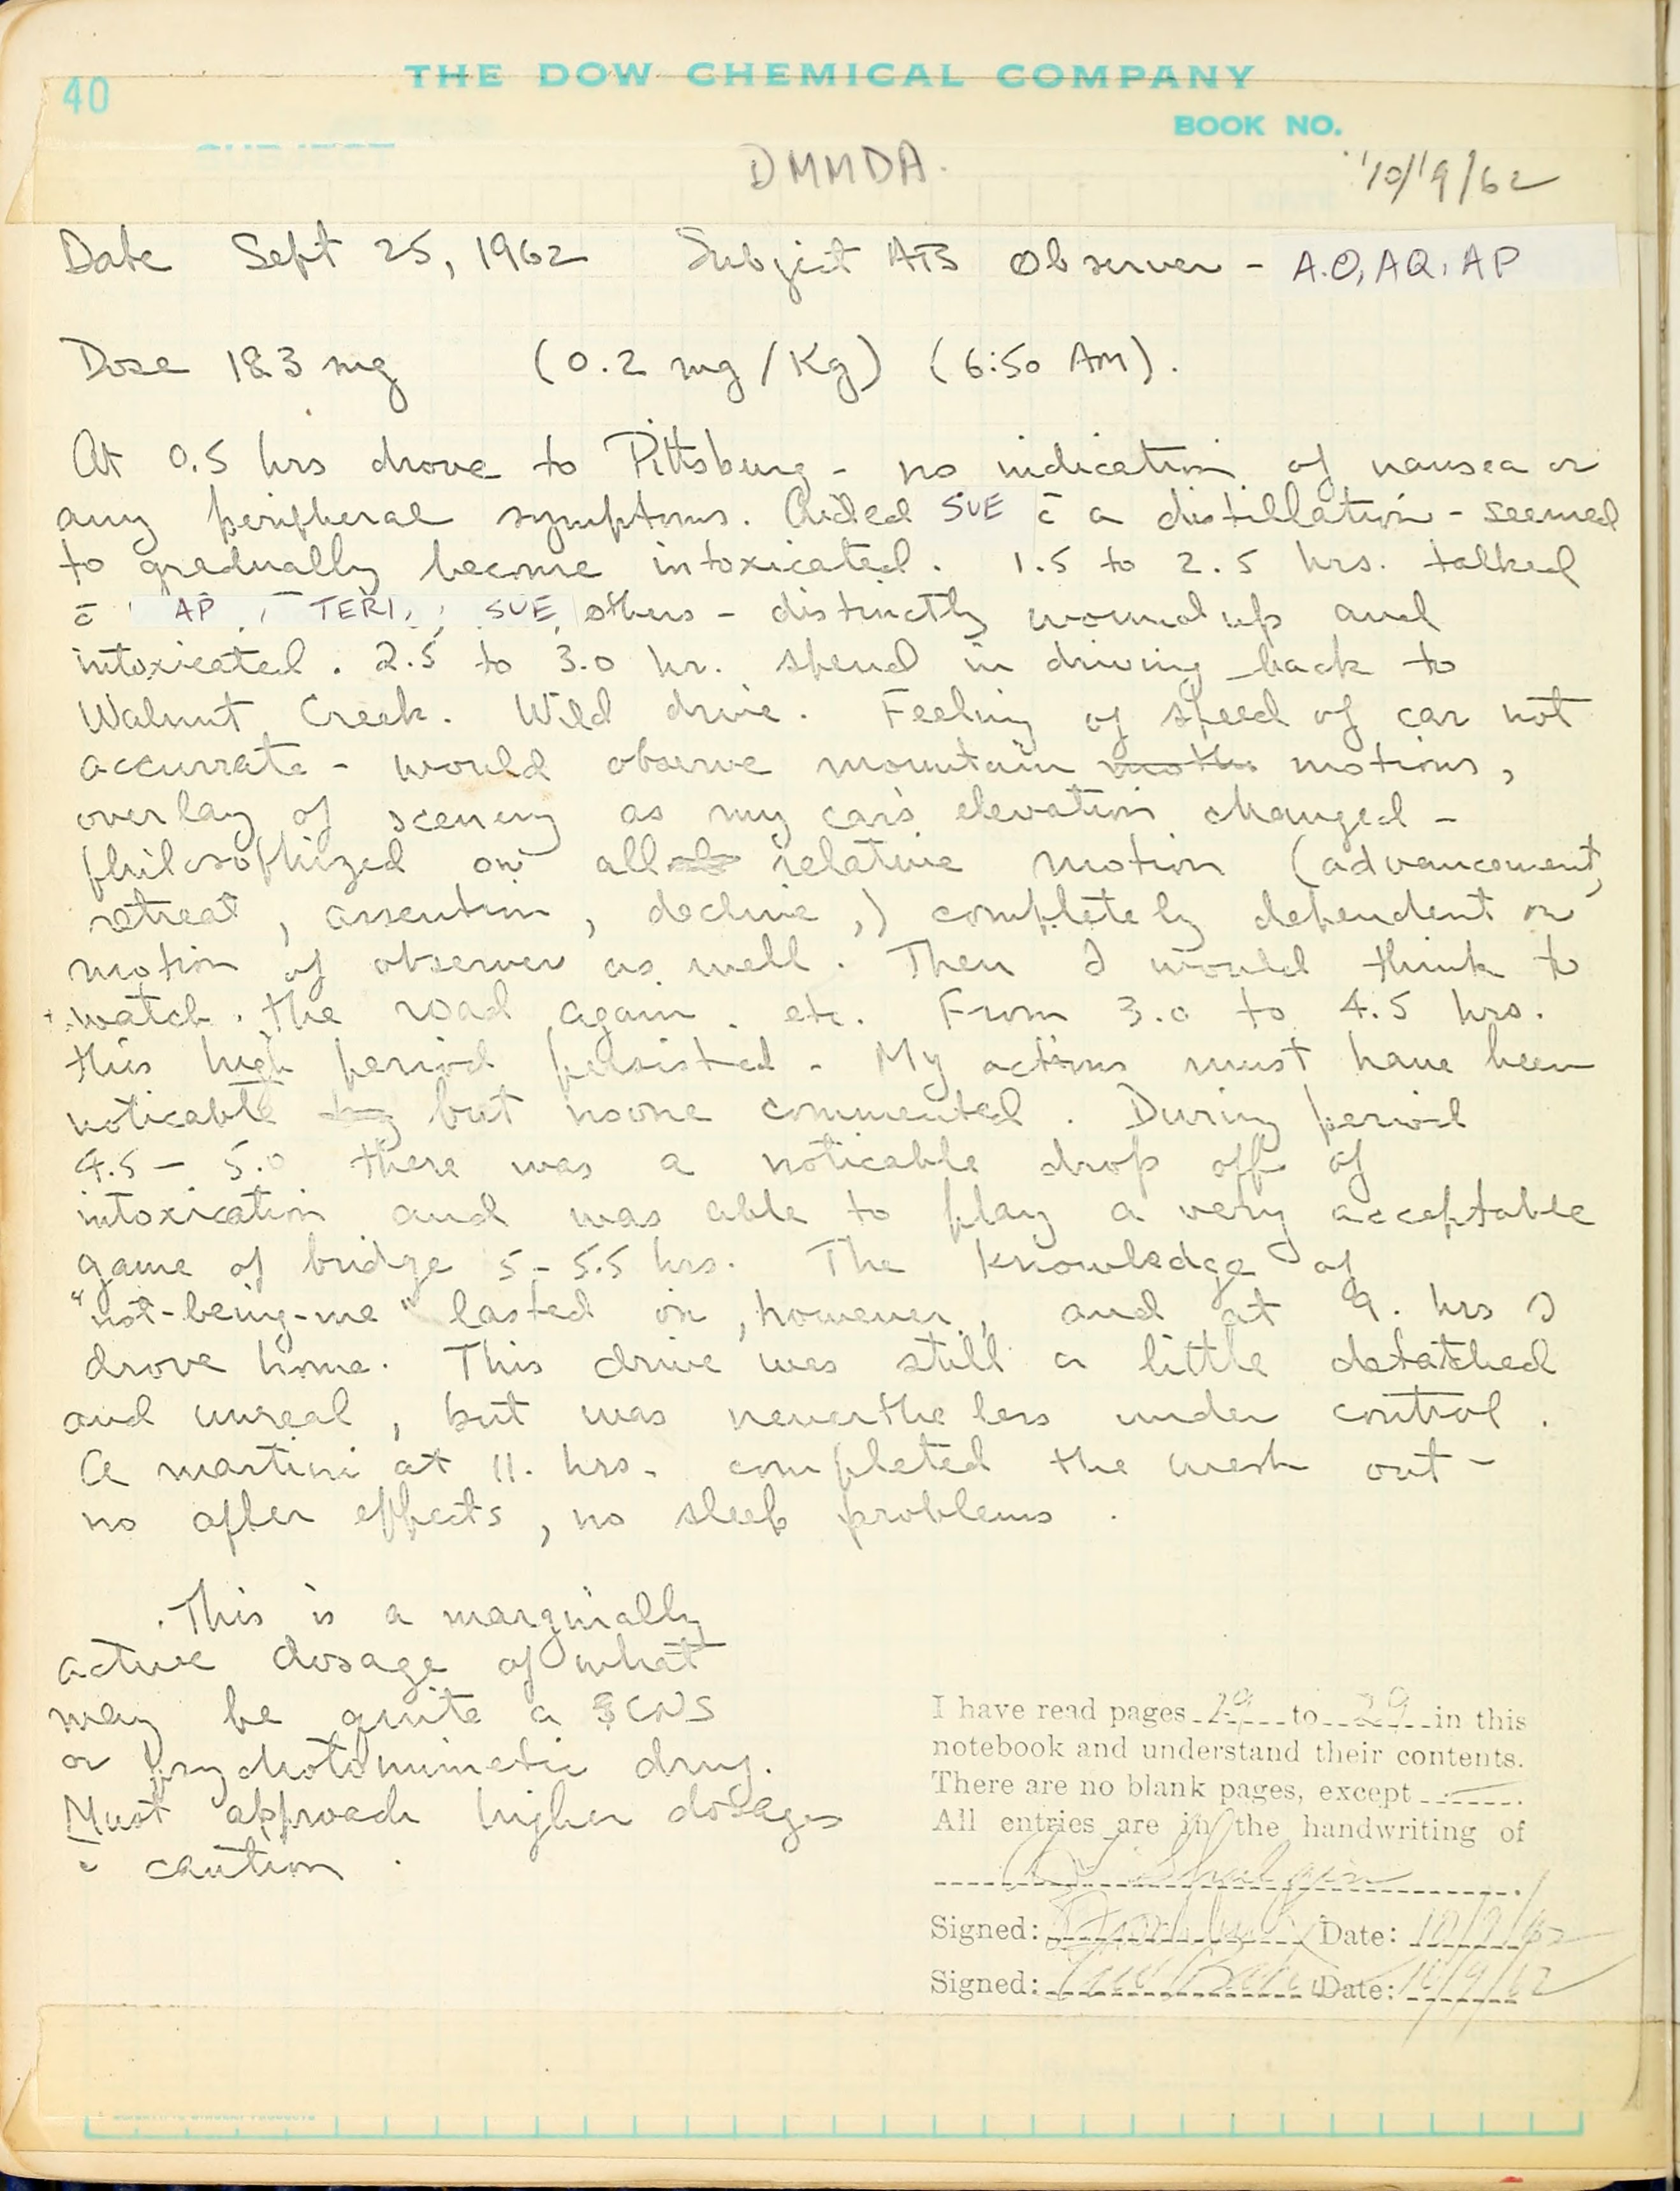 THE DOW CHEMICAL COMPANY
40
BOOK NO.
DMMDA.
10/19/62
Date Sept 25, 1962 Subject ATS Observer - A.O, AQ, AP
Dose 183 mg (0.2 mg/Kg) (6:50 AM).
At 0.5 hrs drove to Pittsburg - no indication of nausea or
any peripheral symptoms. Aided SUE c̄ a distillation - seemed
to gradually become intoxicated. 1.5 to 2.5 hrs. talked
c̄ AP, TERI, SUE, others - distinctly wound up and
intoxicated. 2.5 to 3.0 hr. spend in driving back to
Walnut Creek. Wild drive. Feeling of speed of car not
accurrate - would observe mountain motions,
overlay of scenery as my car's elevation changed -
philosophized on all relative motion (advancement,
retreat, assention, decline,) completely dependent on
motion of observer as well. Then I would think to
watch the road again. etc. From 3.0 to 4.5 hrs.
this high period persisted - My actions must have been
noticable but noone commented. During period
4.5 - 5.0 there was a noticable drop off of
intoxication and was able to play a very acceptable
game of bridge 5-5.5 hrs. The knowledge of
"not-being-me" lasted on, however, and at 9. hrs I
drove home. This drive was still a little detatched
and unreal, but was nevertheless under control.
A martini at 11. hrs. completed the wash out -
no after effects, no sleep problems.
This is a marginially
active dosage of what
may be quite a CNS
or psychotomimetic drug.
Must approach higher dosages
c̄ caution.
I have read pages 19 to 29 in this
notebook and understand their contents.
There are no blank pages, except ———.
All entries are in the handwriting of
Shulgin
Signed: Date: 10/9/62
Signed: Date: 10/9/62